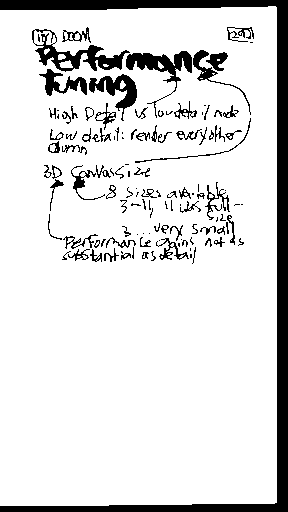 DOOM
Performance
Tuning
High Detail vs low detail mode
Low detail: render every other
column
3D Canvas Size
8 sizes available
3-11, 11 was full-
size
3... very small
Performance gains not as
substantial as detail